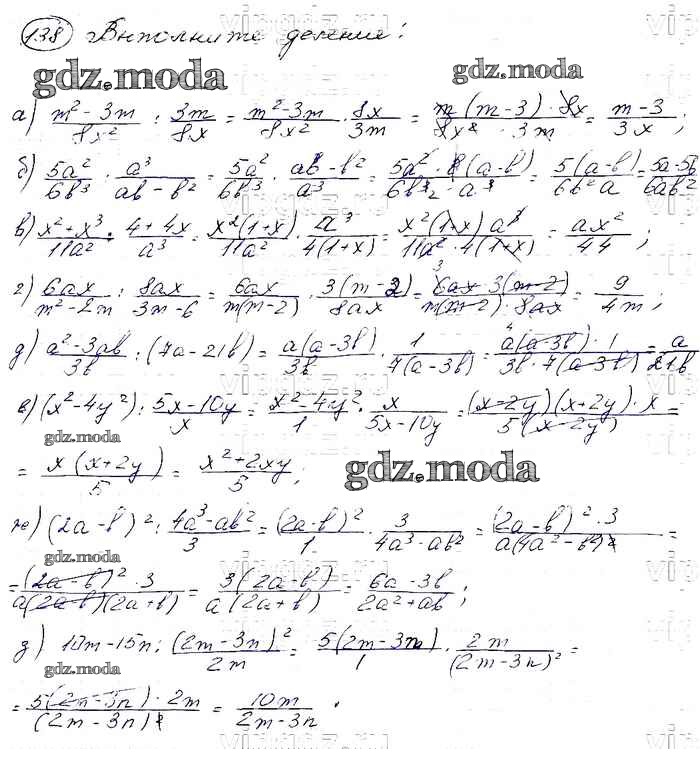 138 Выполните деление:
gdz.moda gdz.moda
а) (m² - 3m)/(8x²) : 3m/8x = (m² - 3m)/(8x²) · 8x/3m = (m(m - 3) · 8x)/(8x² · 3m) = (m - 3)/(3x);
б) 5a²/6b³ : a³/(ab - b²) = 5a²/6b³ · (ab - b²)/a³ = (5a² · b(a - b))/(6b³ · a³) = 5(a - b)/(6b²a) = (5a - 5b)/(6ab²)
в) (x² + x³)/(11a²) : (4 + 4x)/a³ = x²(1 + x)/(11a²) · a³/(4(1 + x)) = (x²(1 + x)a³)/(11a² · 4(1 + x)) = ax²/44;
г) 6ax/(m² - 2m) : 8ax/(3m - 6) = 6ax/(m(m - 2)) · 3(m - 2)/(8ax) = (6ax · 3(m - 2))/(m(m - 2) · 8ax) = 9/(4m);
д) (a² - 3ab)/(3b) : (7a - 21b) = a(a - 3b)/(3b) · 1/(7(a - 3b)) = (a(a - 3b) · 1)/(3b · 7(a - 3b)) = a/(21b)
е) (x² - 4y²) : (5x - 10y)/x = (x² - 4y²)/1 · x/(5x - 10y) = ((x - 2y)(x + 2y) · x)/(5(x - 2y)) =
gdz.moda
= x(x + 2y)/5 = (x² + 2xy)/5; gdz.moda
ж) (2a - b)² : (4a³ - ab²)/3 = (2a - b)²/1 · 3/(4a³ - ab²) = ((2a - b)² · 3)/(a(4a² - b²)) =
gdz.moda
= ((2a - b)² · 3)/(a(2a - b)(2a + b)) = 3(2a - b)/(a(2a + b)) = (6a - 3b)/(2a² + ab);
з) 10m - 15n : (2m - 3n)²/(2m) = 5(2m - 3n)/1 · 2m/(2m - 3n)² =
gdz.moda
= (5(2m - 3n) · 2m)/(2m - 3n)² = 10m/(2m - 3n).